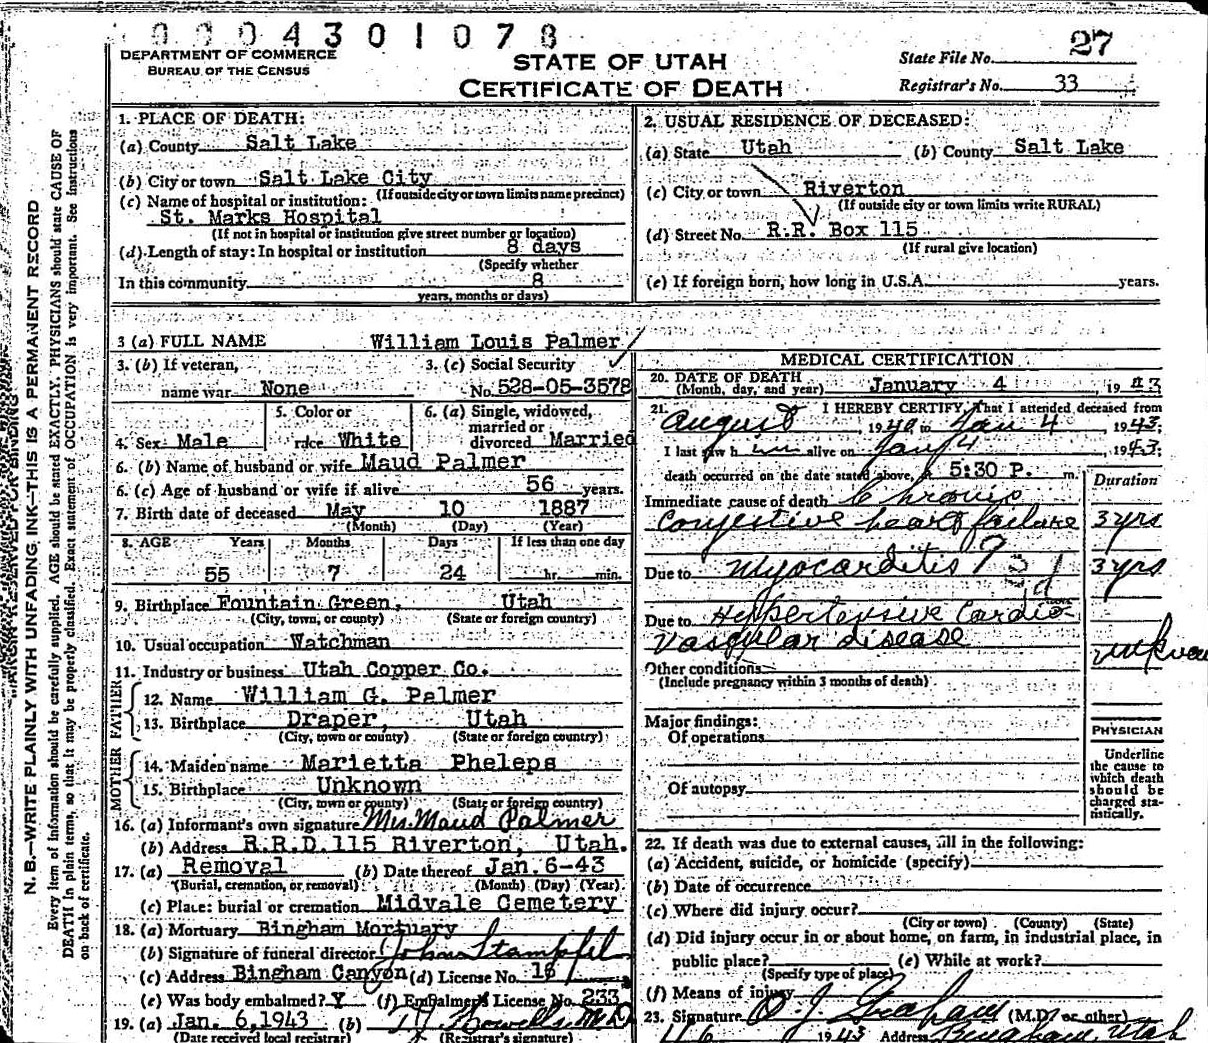 0004301078
DEPARTMENT OF COMMERCE
BUREAU OF THE CENSUS
STATE OF UTAH
CERTIFICATE OF DEATH
State File No. 27
Registrar's No. 33
1. PLACE OF DEATH:
(a) County Salt Lake
(b) City or town Salt Lake City
(If outside city or town limits name precinct)
(c) Name of hospital or institution:
St. Marks Hospital
(If not in hospital or institution give street number or location)
(d) Length of stay: In hospital or institution 8 days
(Specify whether
In this community 8
years, months or days)
2. USUAL RESIDENCE OF DECEASED:
(a) State Utah (b) County Salt Lake
(c) City or town Riverton
(If outside city or town limits write RURAL)
(d) Street No. R.R. Box 115
(If rural give location)
(e) If foreign born, how long in U.S.A. years.
3 (a) FULL NAME William Louis Palmer
3. (b) If veteran, 3. (c) Social Security
name war None No. 528-05-3578
4. Sex Male 5. Color or race White 6. (a) Single, widowed, married or divorced Married
6. (b) Name of husband or wife Maud Palmer
6. (c) Age of husband or wife if alive 56 years.
7. Birth date of deceased May 10 1887
(Month) (Day) (Year)
8. AGE Years Months Days If less than one day
55 7 24 hr. min.
9. Birthplace Fountain Green, Utah
(City, town, or county) (State or foreign country)
10. Usual occupation Watchman
11. Industry or business Utah Copper Co.
FATHER
12. Name William G. Palmer
13. Birthplace Draper, Utah
(City, town or county) (State or foreign country)
MOTHER
14. Maiden name Marietta Pheleps
15. Birthplace Unknown
(City, town or county) (State or foreign country)
16. (a) Informant's own signature Mrs. Maud Palmer
(b) Address R.R.D.115 Riverton, Utah.
17. (a) Removal (b) Date thereof Jan.6-43
(Burial, cremation, or removal) (Month) (Day) (Year)
(c) Place: burial or cremation Midvale Cemetery
18. (a) Mortuary Bingham Mortuary
(b) Signature of funeral director John Stampfel
(c) Address Bingham Canyon (d) License No. 16
(e) Was body embalmed? Y (f) Embalmer's License No. 233
19. (a) Jan. 6,1943 (b) Howells M.D.
(Date received local registrar) (Registrar's signature)
MEDICAL CERTIFICATION
20. DATE OF DEATH
(Month, day, and year) January 4, 1943
21. I HEREBY CERTIFY, That I attended deceased from
August 1940 to Jan 4 1943;
I last saw him alive on Jan 4 1943;
death occurred on the date stated above, at 5:30 P. m.
Duration
Immediate cause of death Chronic
Congestive heart failure 3 yrs
Due to Myocarditis 3 yrs
Due to Hypertensive Cardio
Vascular disease
Other conditions
(Include pregnancy within 3 months of death)
Major findings:
Of operations
Of autopsy
PHYSICIAN
Underline
the cause to
which death
should be
charged sta-
tistically.
22. If death was due to external causes, fill in the following:
(a) Accident, suicide, or homicide (specify)
(b) Date of occurrence
(c) Where did injury occur?
(City or town) (County) (State)
(d) Did injury occur in or about home, on farm, in industrial place, in
public place? (e) While at work?
(Specify type of place)
(f) Means of injury
23. Signature O J Graham (M.D. or other)
1/6 1943 Address Bingham, Utah
N. B.—WRITE PLAINLY WITH UNFADING INK—THIS IS A PERMANENT RECORD
Every item of information should be carefully supplied. AGE should be stated EXACTLY. PHYSICIANS should state CAUSE OF
DEATH in plain terms, so that it may be properly classified. Exact statement of OCCUPATION is very important. See instructions
on back of certificate.
MARGIN RESERVED FOR BINDING